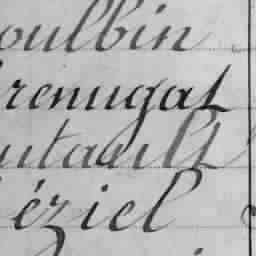 oulbin
renugat
utault
éziel